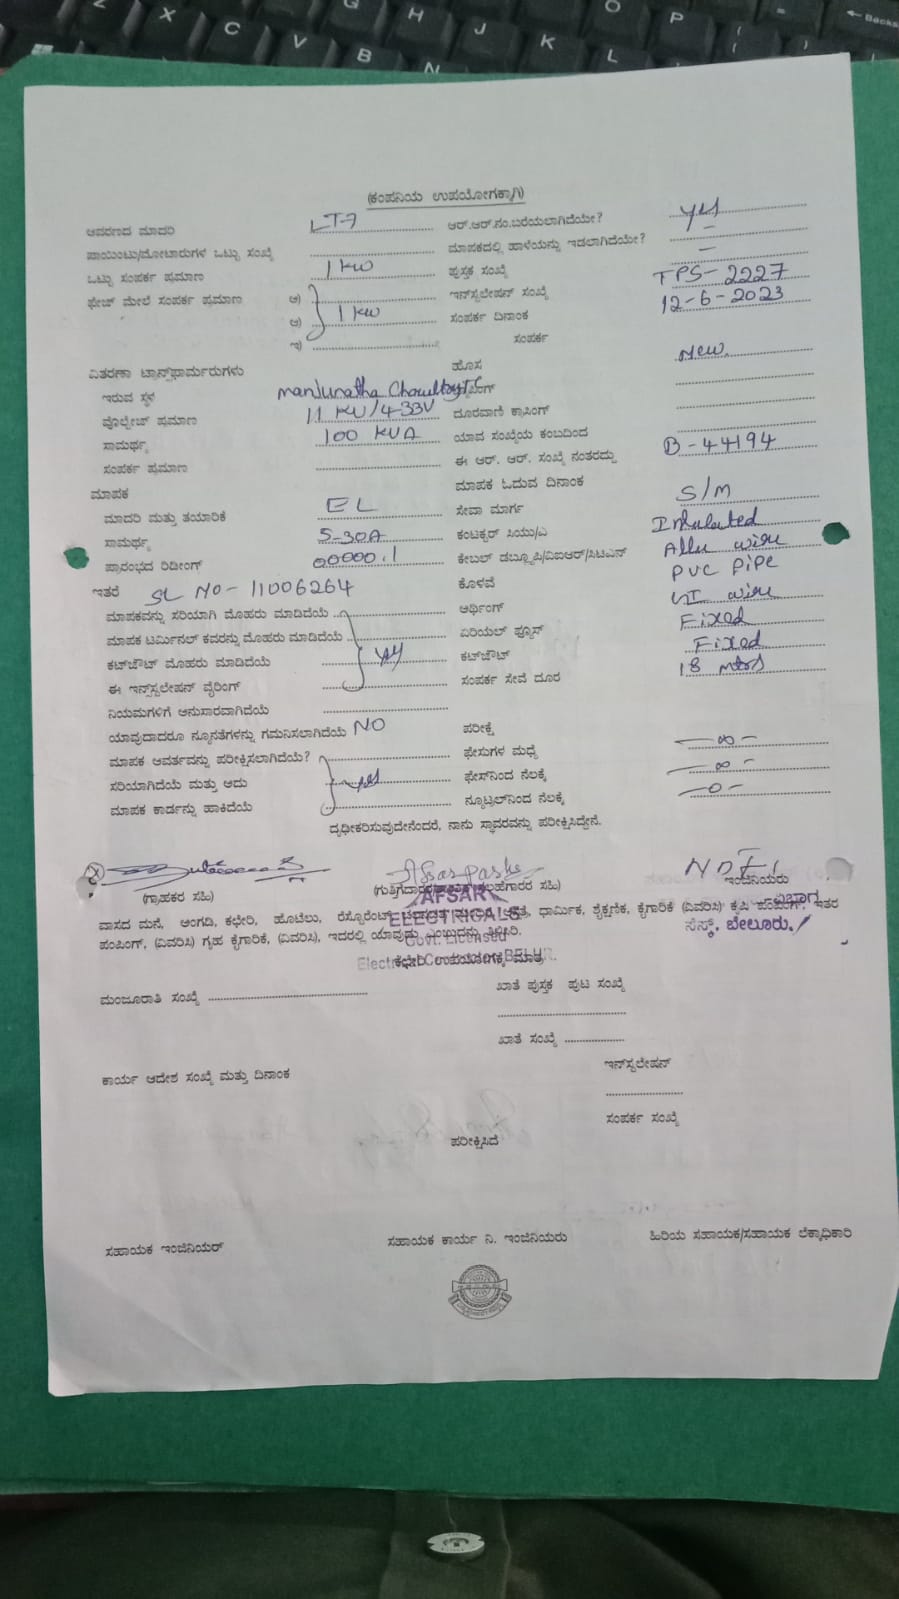 (ಕಂಪನಿಯ ಉಪಯೋಗಕ್ಕಾಗಿ)
ಆವರಣದ ಮಾದರಿ LT-7 ಆರ್.ಆರ್.ನಂ.ಬರೆಯಲಾಗಿದೆಯೇ? yes
ಪಾಯಿಂಟು/ಮೋಟಾರುಗಳ ಒಟ್ಟು ಸಂಖ್ಯೆ ಮಾಪಕದಲ್ಲಿ ಹಾಳೆಯನ್ನು ಇಡಲಾಗಿದೆಯೇ? –
ಒಟ್ಟು ಸಂಪರ್ಕ ಪ್ರಮಾಣ 1 KW ಪುಸ್ತಕ ಸಂಖ್ಯೆ –
ಫೇಜ್ ಮೇಲೆ ಸಂಪರ್ಕ ಪ್ರಮಾಣ ಅ) ಇನ್‌ಸ್ಟಲೇಷನ್ ಸಂಖ್ಯೆ TPS-2227
ಆ) 1 KW ಸಂಪರ್ಕ ದಿನಾಂಕ 12-6-2023
ಇ) ಸಂಪರ್ಕ
ವಿತರಣಾ ಟ್ರಾನ್ಸ್‌ಫಾರ್ಮರುಗಳು ಹೊಸ New
ಇರುವ ಸ್ಥಳ manjunatha Chowltry
ವೊಲ್ಟೇಜ್ ಪ್ರಮಾಣ 11 KV/433V ದೂರವಾಣಿ ಕ್ರಾಸಿಂಗ್
ಸಾಮರ್ಥ್ಯ 100 KVA ಯಾವ ಸಂಖ್ಯೆಯ ಕಂಬದಿಂದ
ಸಂಪರ್ಕ ಪ್ರಮಾಣ ಈ ಆರ್. ಆರ್. ಸಂಖ್ಯೆ ನಂತರದ್ದು B-44194
ಮಾಪಕ ಮಾಪಕ ಓದುವ ದಿನಾಂಕ
ಮಾದರಿ ಮತ್ತು ತಯಾರಿಕೆ EL ಸೇವಾ ಮಾರ್ಗ S/M
ಸಾಮರ್ಥ್ಯ 5-30A ಕಂಟಕ್ಟರ್ ಸಿಯು/ಎ Insulated
ಪ್ರಾರಂಭದ ರಿಡೀಂಗ್ 00000.1 ಕೇಬಲ್ ಡಬ್ಲ್ಯೂಪಿ/ವಿಐಆರ್/ಸಿಟಿಎಸ್ Allu wire
ಇತರೆ SL NO-11006264 ಕೊಳವೆ PVC PiPe
ಮಾಪಕವನ್ನು ಸರಿಯಾಗಿ ಮೊಹರು ಮಾಡಿದೆಯೆ ಅರ್ಥಿಂಗ್ GI wire
ಮಾಪಕ ಟರ್ಮಿನಲ್ ಕವರನ್ನು ಮೊಹರು ಮಾಡಿದೆಯೆ ಏರಿಯಲ್ ಫ್ಯೂಸ್ Fixed
ಕಟ್‌ಔಟ್ ಮೊಹರು ಮಾಡಿದೆಯೆ yes ಕಟ್‌ಔಟ್ Fixed
ಈ ಇನ್ಸ್‌ಸ್ಟಲೇಷನ್ ವೈರಿಂಗ್ ಸಂಪರ್ಕ ಸೇವೆ ದೂರ 18 mtrs
ನಿಯಮಗಳಿಗೆ ಅನುಸಾರವಾಗಿದೆಯೆ
ಯಾವುದಾದರೂ ನ್ಯೂನತೆಗಳನ್ನು ಗಮನಿಸಲಾಗಿದೆಯೆ NO ಪರೀಕ್ಷೆ
ಮಾಪಕ ಆವರ್ತವನ್ನು ಪರೀಕ್ಷಿಸಲಾಗಿದೆಯೆ? ಫೇಸುಗಳ ಮಧ್ಯೆ –∞–
ಸರಿಯಾಗಿದೆಯೆ ಮತ್ತು ಅದು yes ಫೇಸ್‌ನಿಂದ ನೆಲಕ್ಕೆ –∞–
ಮಾಪಕ ಕಾರ್ಡನ್ನು ಹಾಕಿದೆಯೆ ನ್ಯೂಟ್ರಲ್‌ನಿಂದ ನೆಲಕ್ಕೆ –0–
ದೃಢೀಕರಿಸುವುದೇನೆಂದರೆ, ನಾನು ಸ್ಥಾವರವನ್ನು ಪರೀಕ್ಷಿಸಿದ್ದೇನೆ.
Afsar pasha
(ಗ್ರಾಹಕರ ಸಹಿ) ಇಂಜಿನಿಯರು
AFSAR
ELECTRICALS
Govt. Licensed
Electrical Contractor BELUR.
ವಾಸದ ಮನೆ, ಅಂಗಡಿ, ಕಛೇರಿ, ಹೊಟೆಲು, ರೆಸ್ಟೊರೆಂಟ್, ಧಾರ್ಮಿಕ, ಶೈಕ್ಷಣಿಕ, ಕೈಗಾರಿಕೆ (ವಿವರಿಸಿ) ಕೃಷಿ ಇತರ
ಪಂಪಿಂಗ್, (ವಿವರಿಸಿ) ಗೃಹ ಕೈಗಾರಿಕೆ, (ವಿವರಿಸಿ), ಇದರಲ್ಲಿ ಯಾವುದು ಎಂಬುದನ್ನು ತಿಳಿಸಿರಿ. ಸೆಸ್ಕ್, ಬೇಲೂರು.
ಕಛೇರಿ ಉಪಯೋಗಕ್ಕೆ ಮಾತ್ರ
ಮಂಜೂರಾತಿ ಸಂಖ್ಯೆ ಖಾತೆ ಪುಸ್ತಕ ಪುಟ ಸಂಖ್ಯೆ
ಖಾತೆ ಸಂಖ್ಯೆ
ಕಾರ್ಯ ಆದೇಶ ಸಂಖ್ಯೆ ಮತ್ತು ದಿನಾಂಕ ಇನ್‌ಸ್ಟಲೇಷನ್
ಸಂಪರ್ಕ ಸಂಖ್ಯೆ
ಪರೀಕ್ಷಿಸಿದೆ
ಸಹಾಯಕ ಇಂಜಿನಿಯರ್ ಸಹಾಯಕ ಕಾರ್ಯ ನಿ. ಇಂಜಿನಿಯರು ಹಿರಿಯ ಸಹಾಯಕ/ಸಹಾಯಕ ಲೆಕ್ಕಾಧಿಕಾರಿ